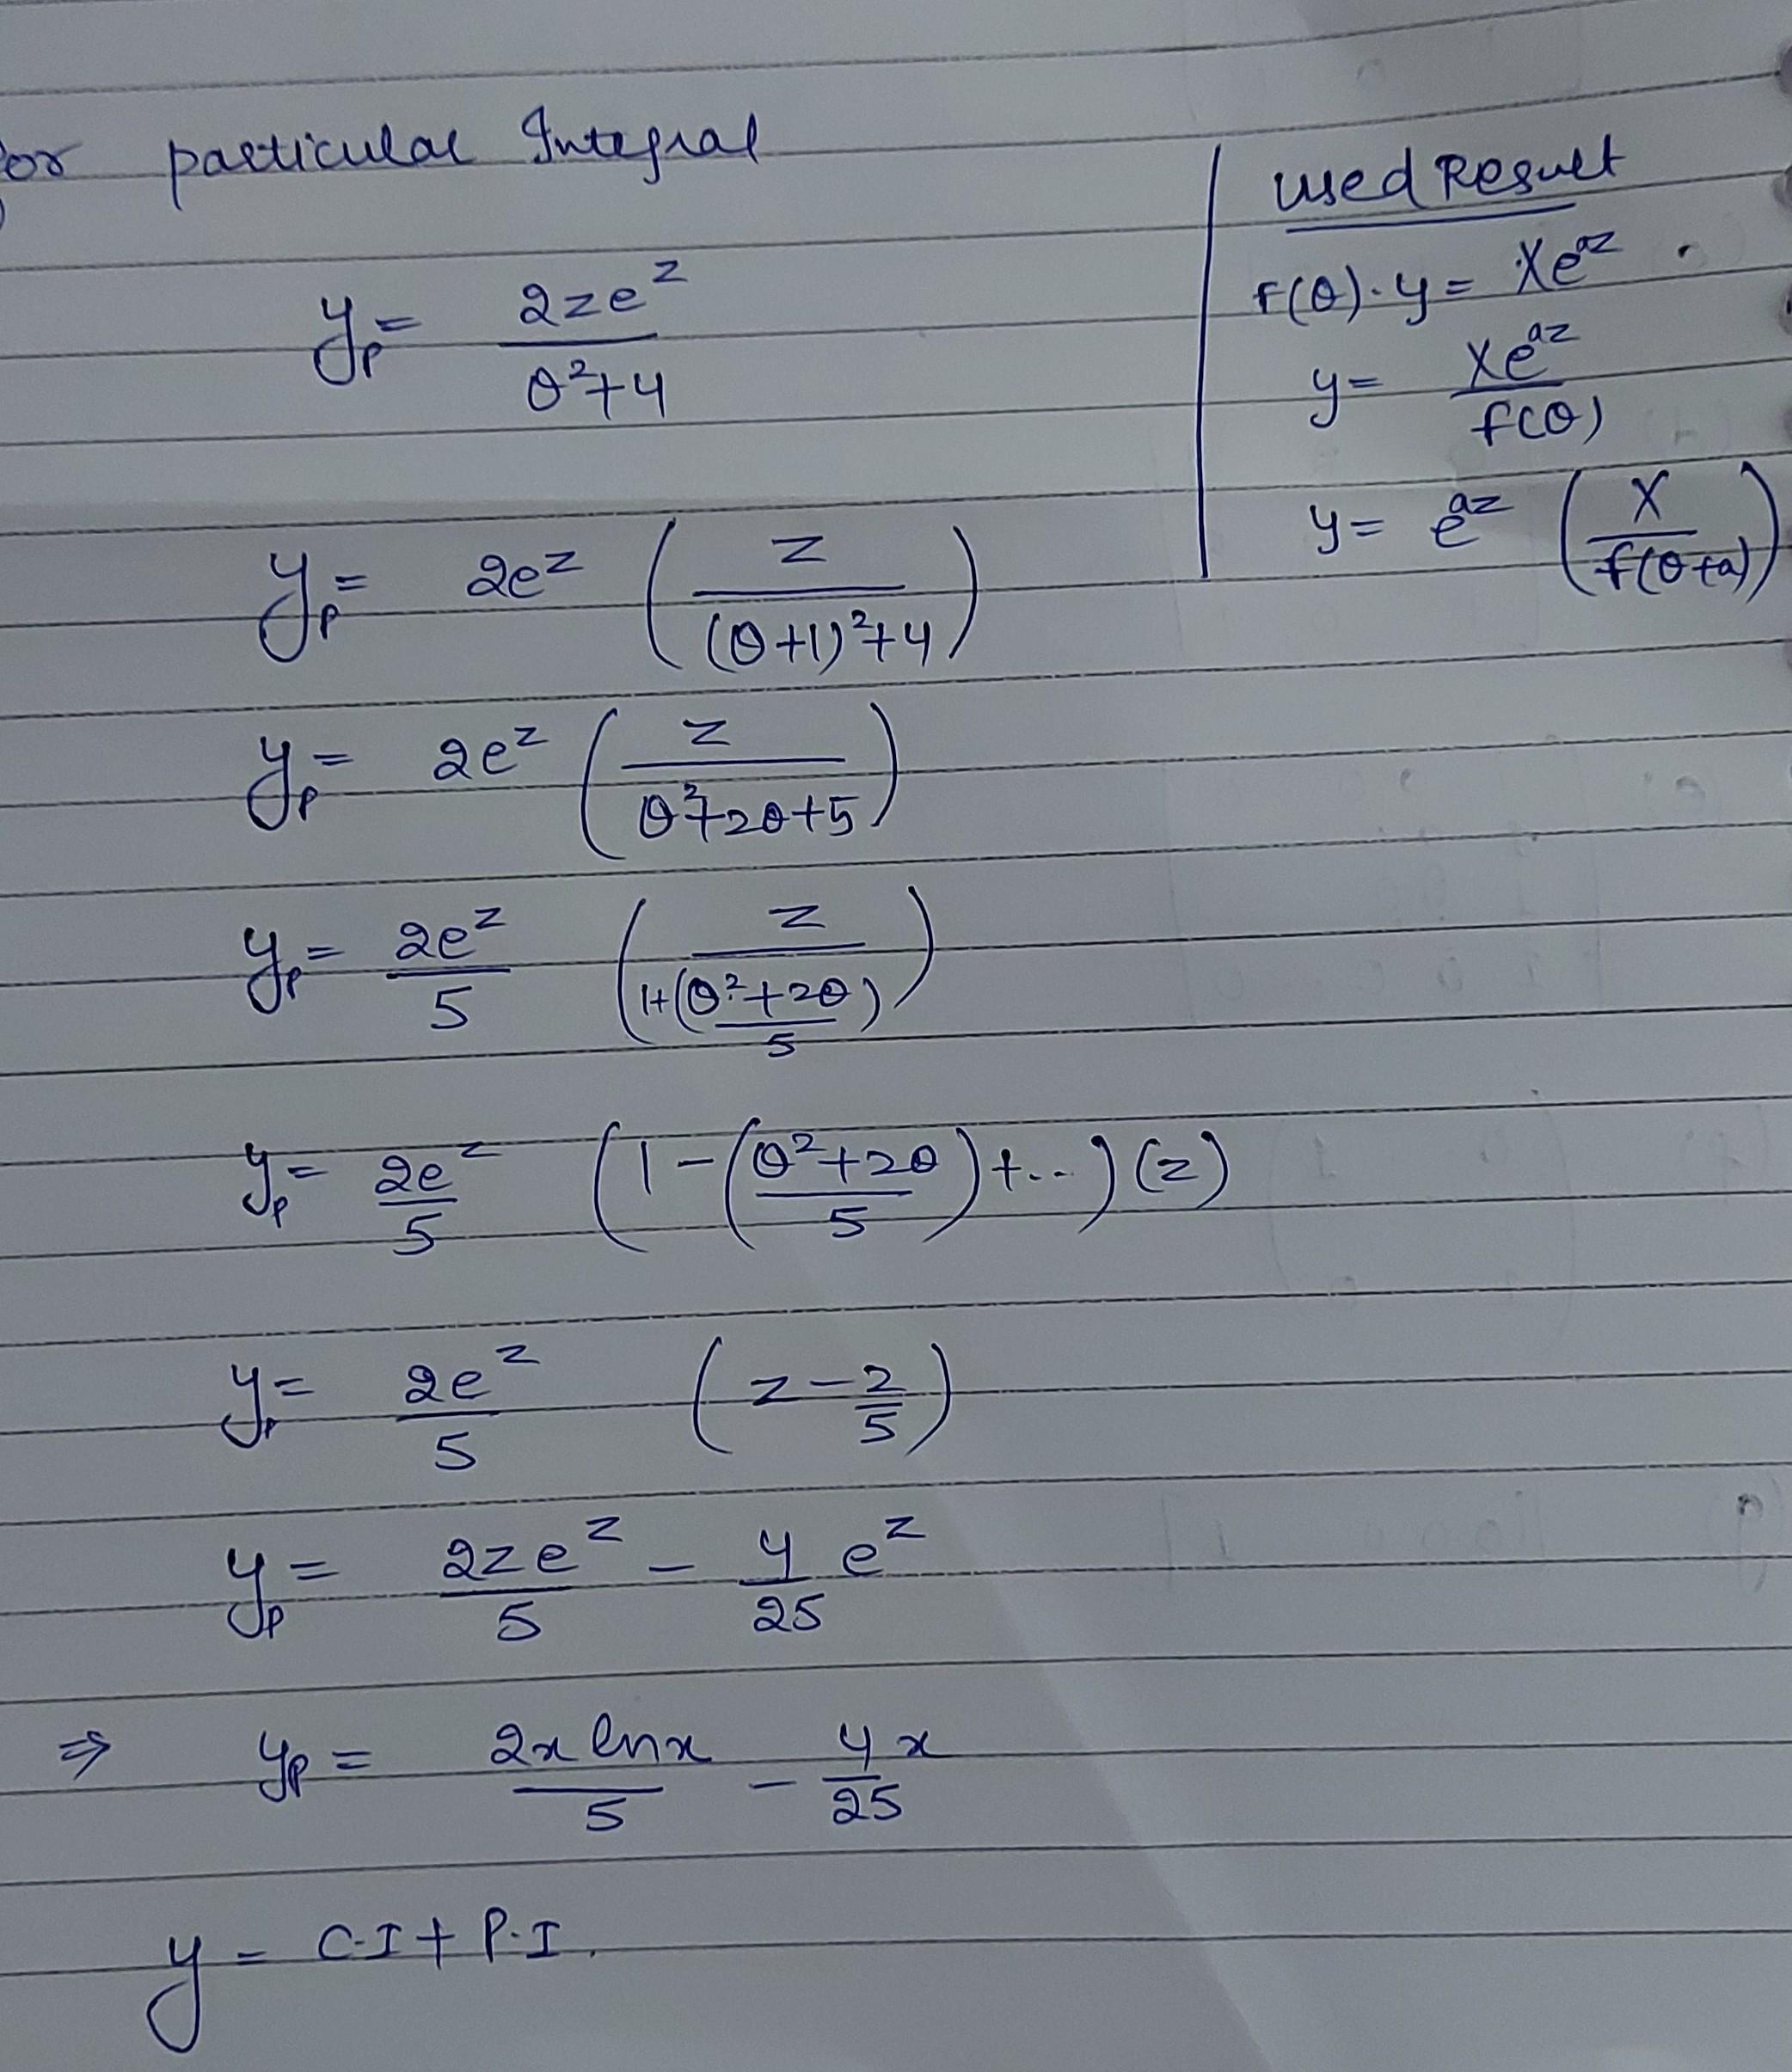 for particular Integral
y_p = 2ze^z / (θ²+4)
y_p = 2e^z ( z / ((θ+1)²+4) )
y_p = 2e^z ( z / (θ²+2θ+5) )
y_p = 2e^z/5 ( z / (1+(θ²+2θ)/5) )
y_p = 2e^z/5 ( 1 - ((θ²+2θ)/5) + ... ) (z)
y_p = 2e^z/5 ( z - 2/5 )
y_p = 2ze^z/5 - 4/25 e^z
⇒ y_p = 2x lnx/5 - 4x/25
y = C.I + P.I.
used Result
f(θ).y = Xe^az .
y = Xe^az / f(θ)
y = e^az ( X / f(θ+a) )